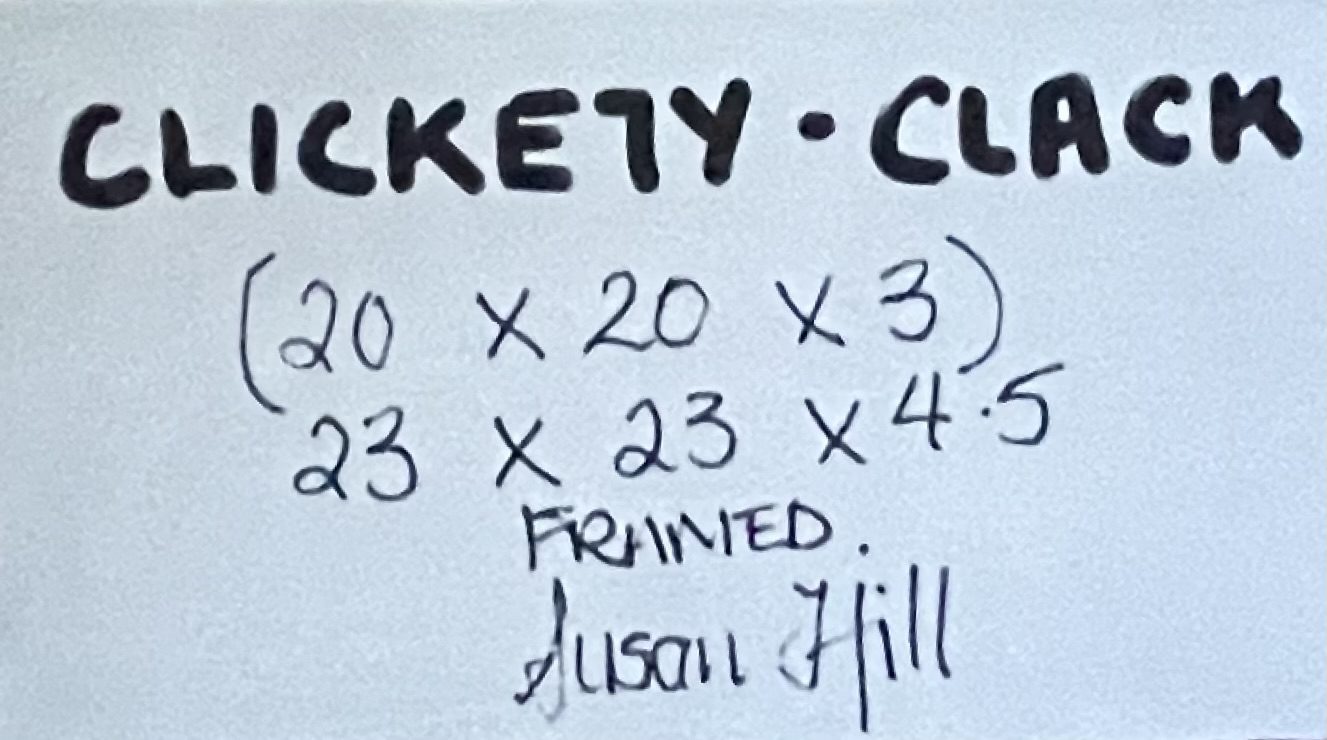 CLICKETY • CLACK
(20 x 20 x 3)
23 x 23 x 4.5
FRAMED.
Susan Hill